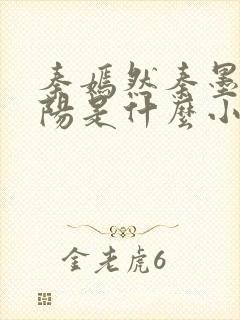 秦嫣然秦墨
陽是什麼小
金老虎6